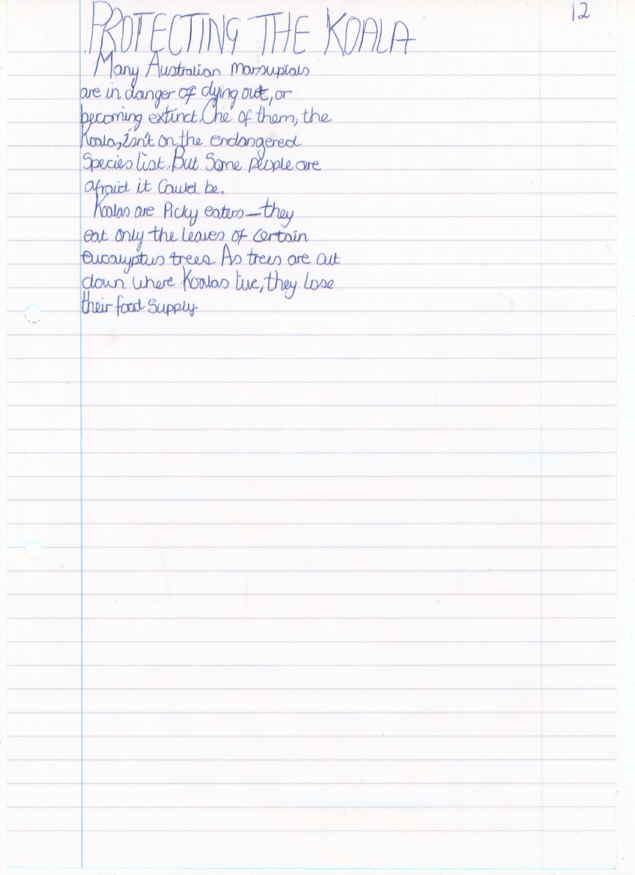 12
PROTECTING THE KOALA
Many Australian Marsupials
are in danger of dying out, or
becoming extinct. One of them, the
Koala, isn't on the endangered
Species list. But Some people are
afraid it Could be.
Koalas are Picky eaters—they
eat only the leaves of certain
eucalyptus trees. As trees are cut
down where Koalas live, they lose
their food Supply.